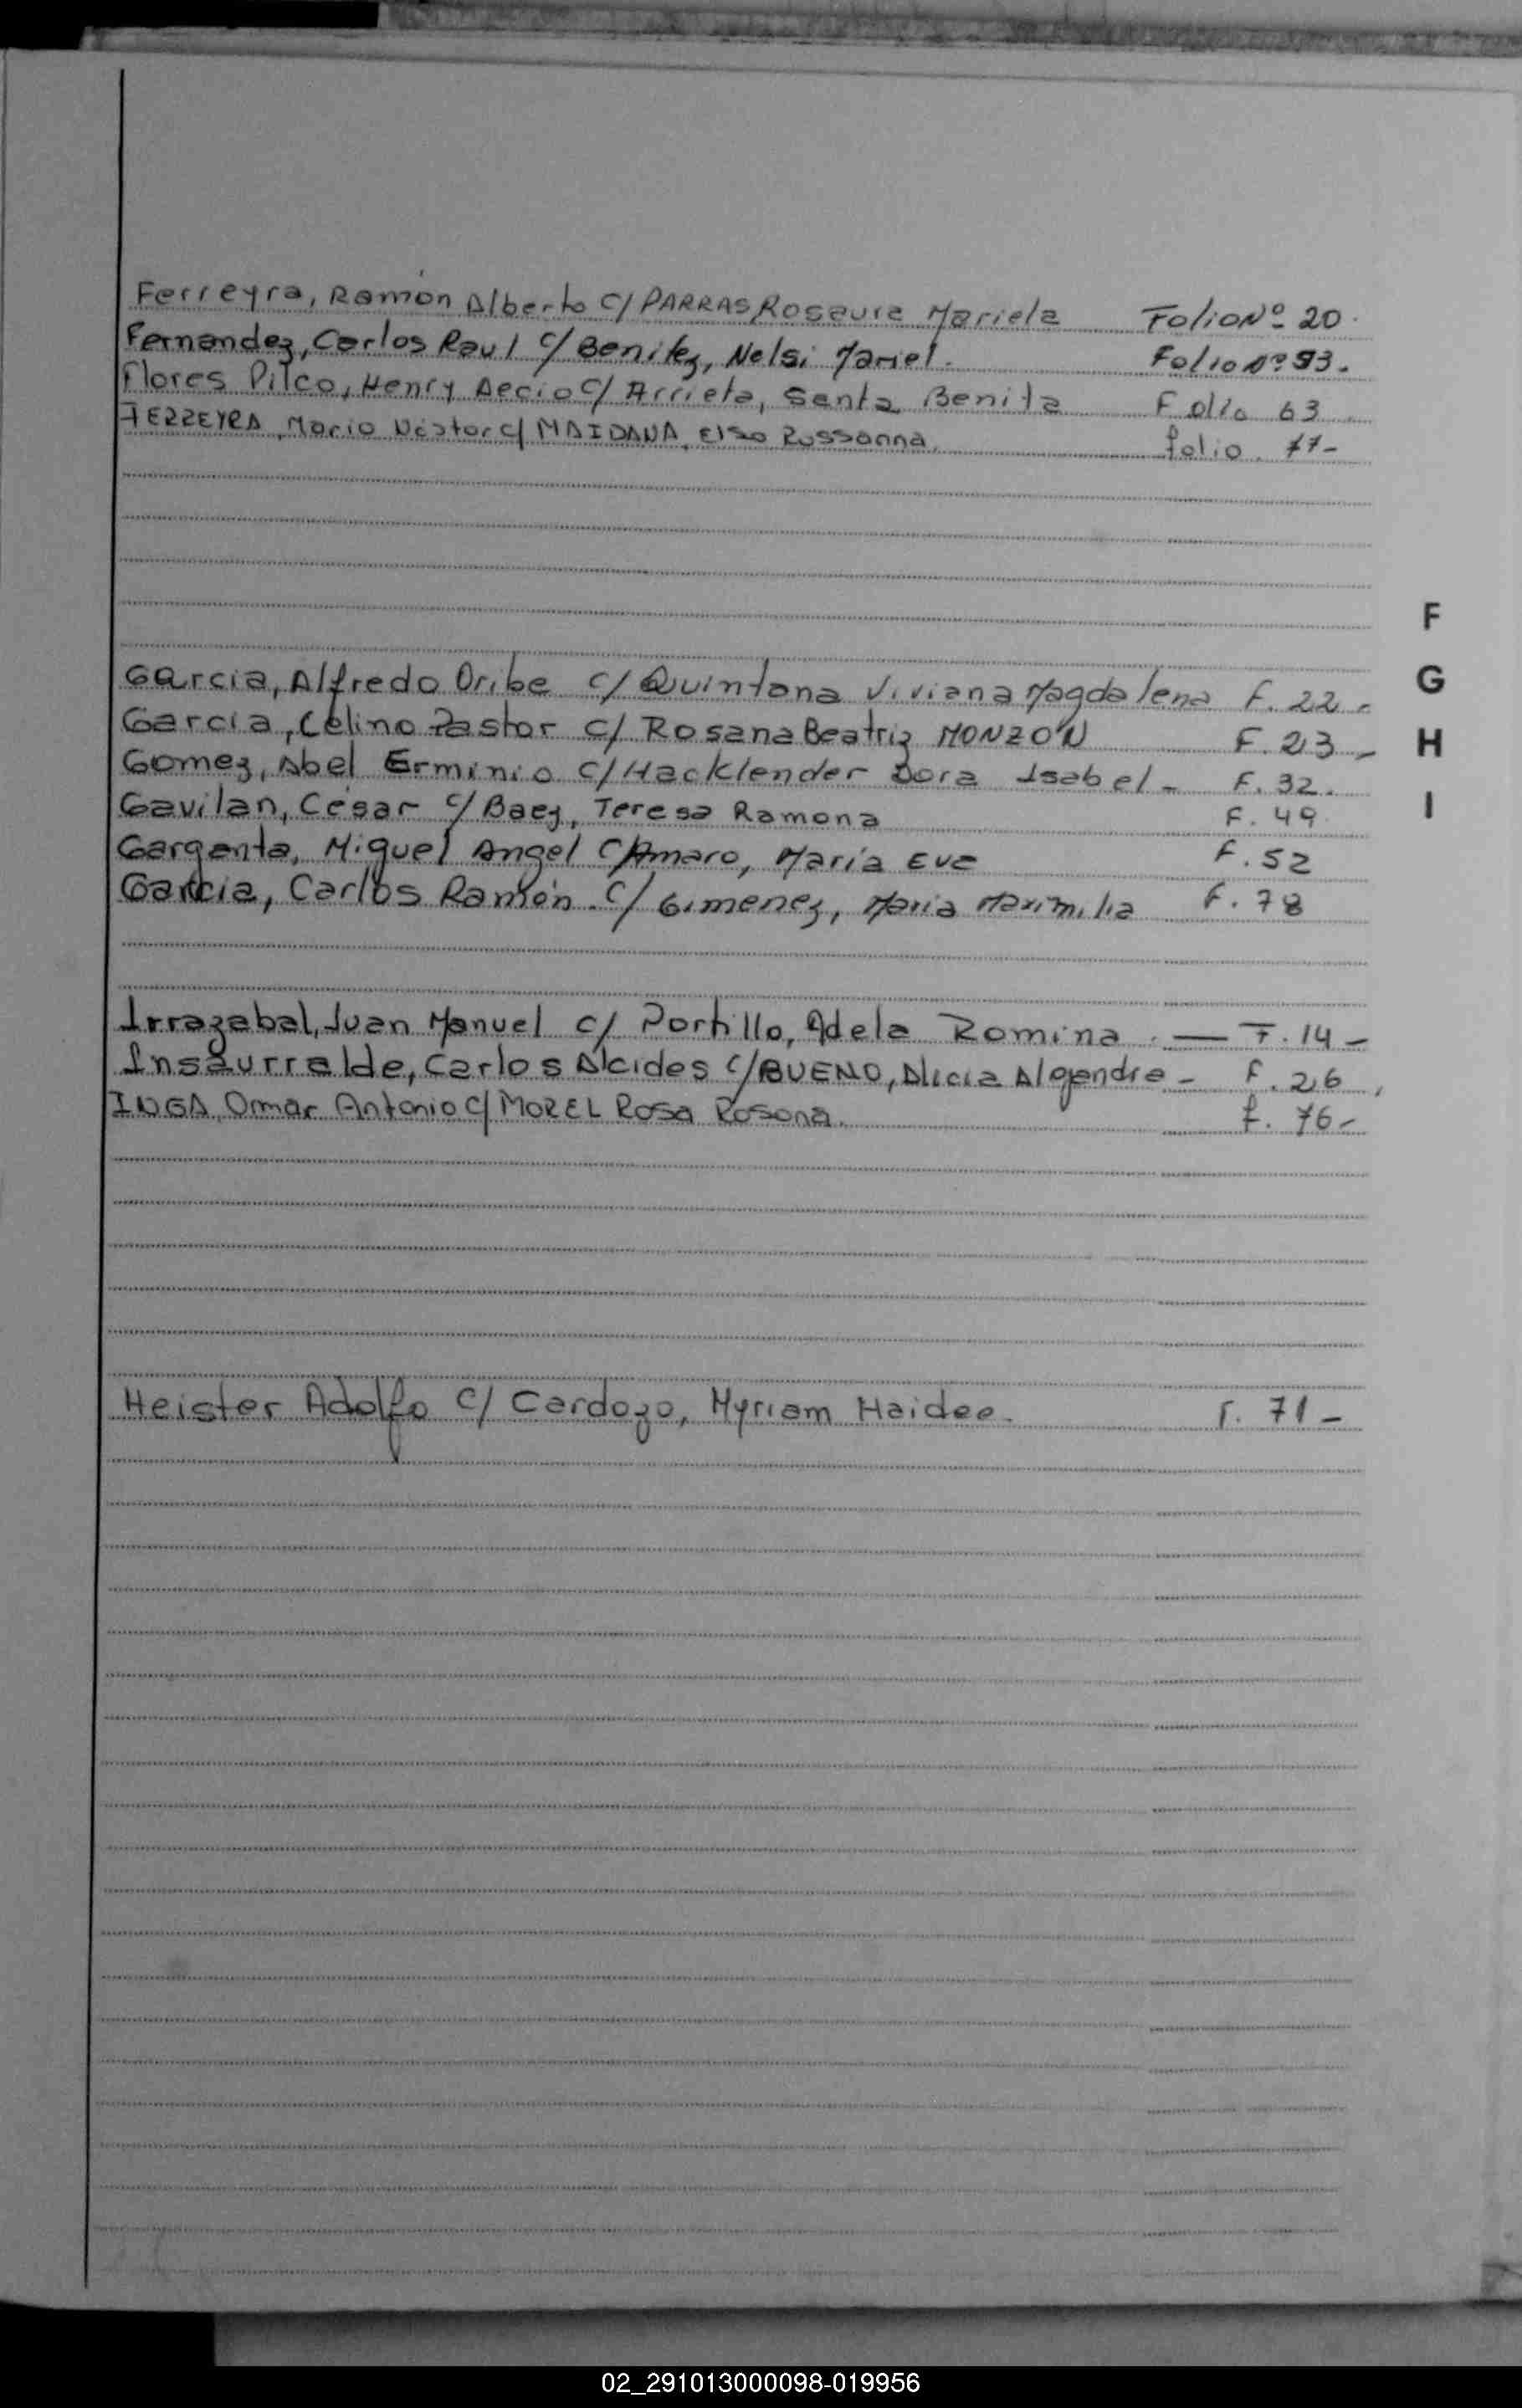 Ferreyra, Ramón Alberto C/ PARRAS Rosaura Mariela Folio Nº 20.
Fernandez, Carlos Raul C/ Benitez, Nelsi Mariel. Folio Nº 93.
Flores Pilco, Henry Decio C/ Arrieta, Santa Benita Folio 63
FERREYRA, Mario Néstor C/ MAIDANA, Elsa Russanna. folio. 77-
F
G
H
I
Garcia, Alfredo Oribe C/ Quintana Viviana Magdalena F. 22.
Garcia, Celino Pastor C/ Rosana Beatriz MONZON F. 23-
Gomez, Abel Erminio C/ Hacklender Dora Isabel- F. 32.
Gavilan, César C/ Baez, Teresa Ramona F. 49.
Garganta, Miguel Angel C/ Amaro, Maria Eva F. 52
Garcia, Carlos Ramón. C/ Gimenez, Maria Maximilia F. 78
Irrazabal, Juan Manuel C/ Portillo, Adela Romina. — F. 14-
Insaurralde, Carlos Alcides C/ BUENO, Alicia Alejandra- F. 26,
INGA, Omar Antonio C/ MOREL Rosa Rosana. f. 76-
Heister Adolfo C/ Cardozo, Myriam Haidee. F. 71-
02_291013000098-019956